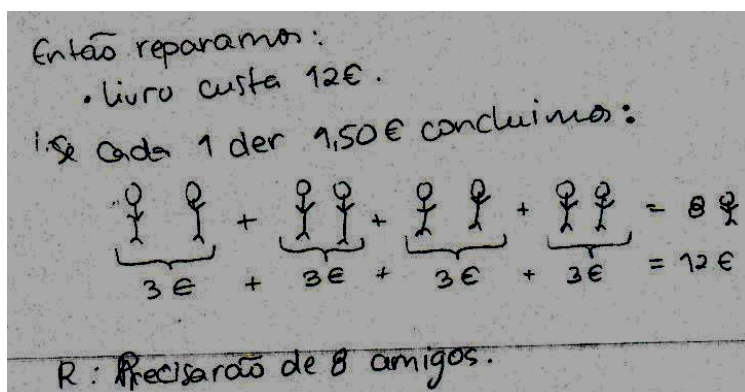 Então reparamos:
• livro custa 12€.
i. Se cada 1 der 1,50€ concluimos:
+ + + = 8
3€ + 3€ + 3€ + 3€ = 12€
R: Precisarão de 8 amigos.